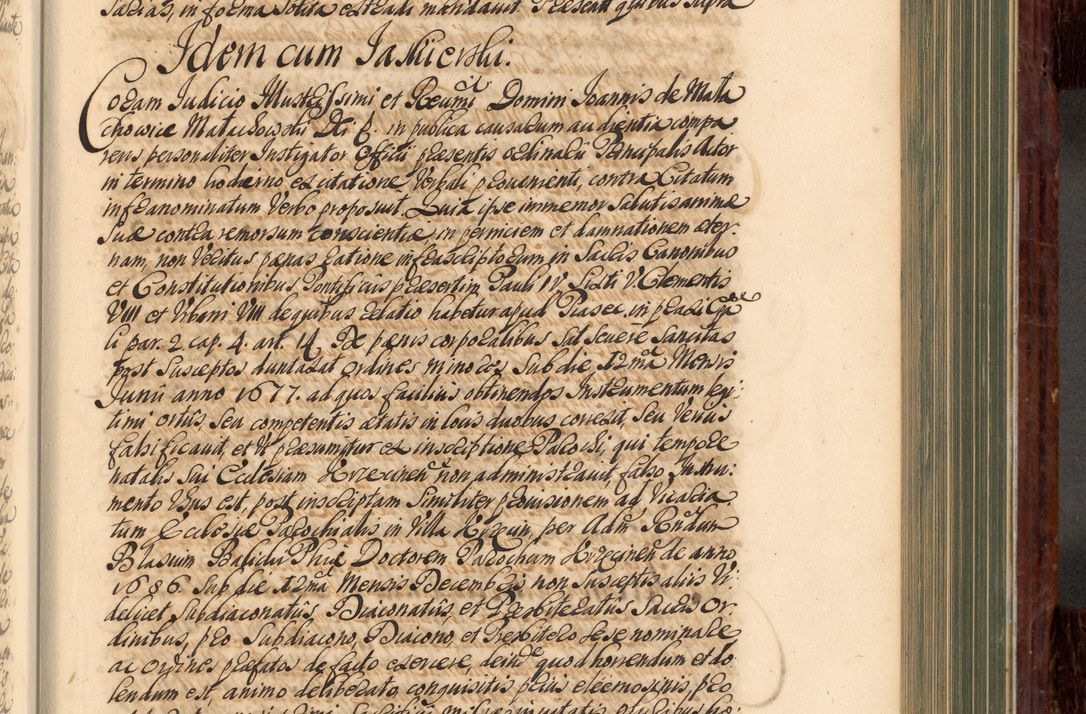 Salvis, in forma solita extradi mandavit. Praesent. quibus supra
Idem cum Jaskierski.
Coram Judicio Illustrissimi et Rndmi Domini Joannis de Mala
chowice Malachowski Dei G. in publica causarum audientia compa
rens personaliter Instigator Officii praesentis ordinarii Principalis Actor
in termino hodierno ex citatione Verbali provenienti, contra Citatum
infranominatum Verbo proposuit. Quia ipse immemor salutis animae
suae contra remorsum conscientiae, in perniciem et damnationem aeter
nam, non Veritus paenas ratione infrascriptorum, in Sacris Canonibus
et Constitutionibus Pontificiis praesertim Pauli IV. Sixti V. Clementis
VIII et Urbani VIII de quibus relatio habetur apud Piasec. in praxi Epa
li par. 2 cap. 4. art. 14. De paenis corporalibus sat severe sancitas
post susceptos duntaxat ordines minores sub die 12ma Mensis
Junii anno 1677. ad quos facilius obtinendos Instrumentum legi:
timi ortus, seu competentis aetatis in locis duobus correxit, seu Verius
falsificavit, et ut praesumitur ex inscriptione Parochi, qui tempore
natalis sui Ecclesiam Krzecinen non administravit, falso Instru:
mento Usus est, post inscriptam similiter provisionem ad Vicaria
tum Ecclesiae Parochialis in Villa Krzecin, per Adm Rndum
Blasium Balicki Phiae Doctorem Parochum Krzecinen de anno
1686. sub die 12ma Mensis Decembris non susceptis aliis Vi:
delicet Subdiaconatus, Diaconatus, et Presbiteratus Sacris Or
dinibus, pro Subdiacono, Diacono et Presbitero sese nominare
ac ordines praefatos de facto exercere, deinde quod horrendum et do
lendum est, animo deliberato, conquisitis prius eleemosinis, pro